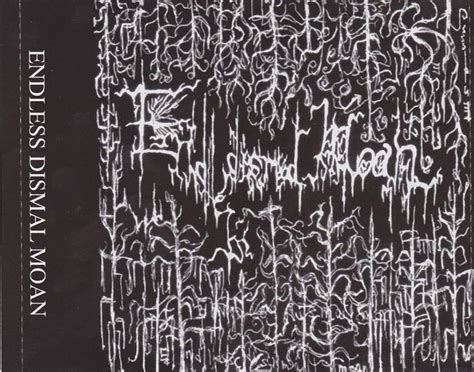 ENDLESS DISMAL MOAN
Endless dismal Moan